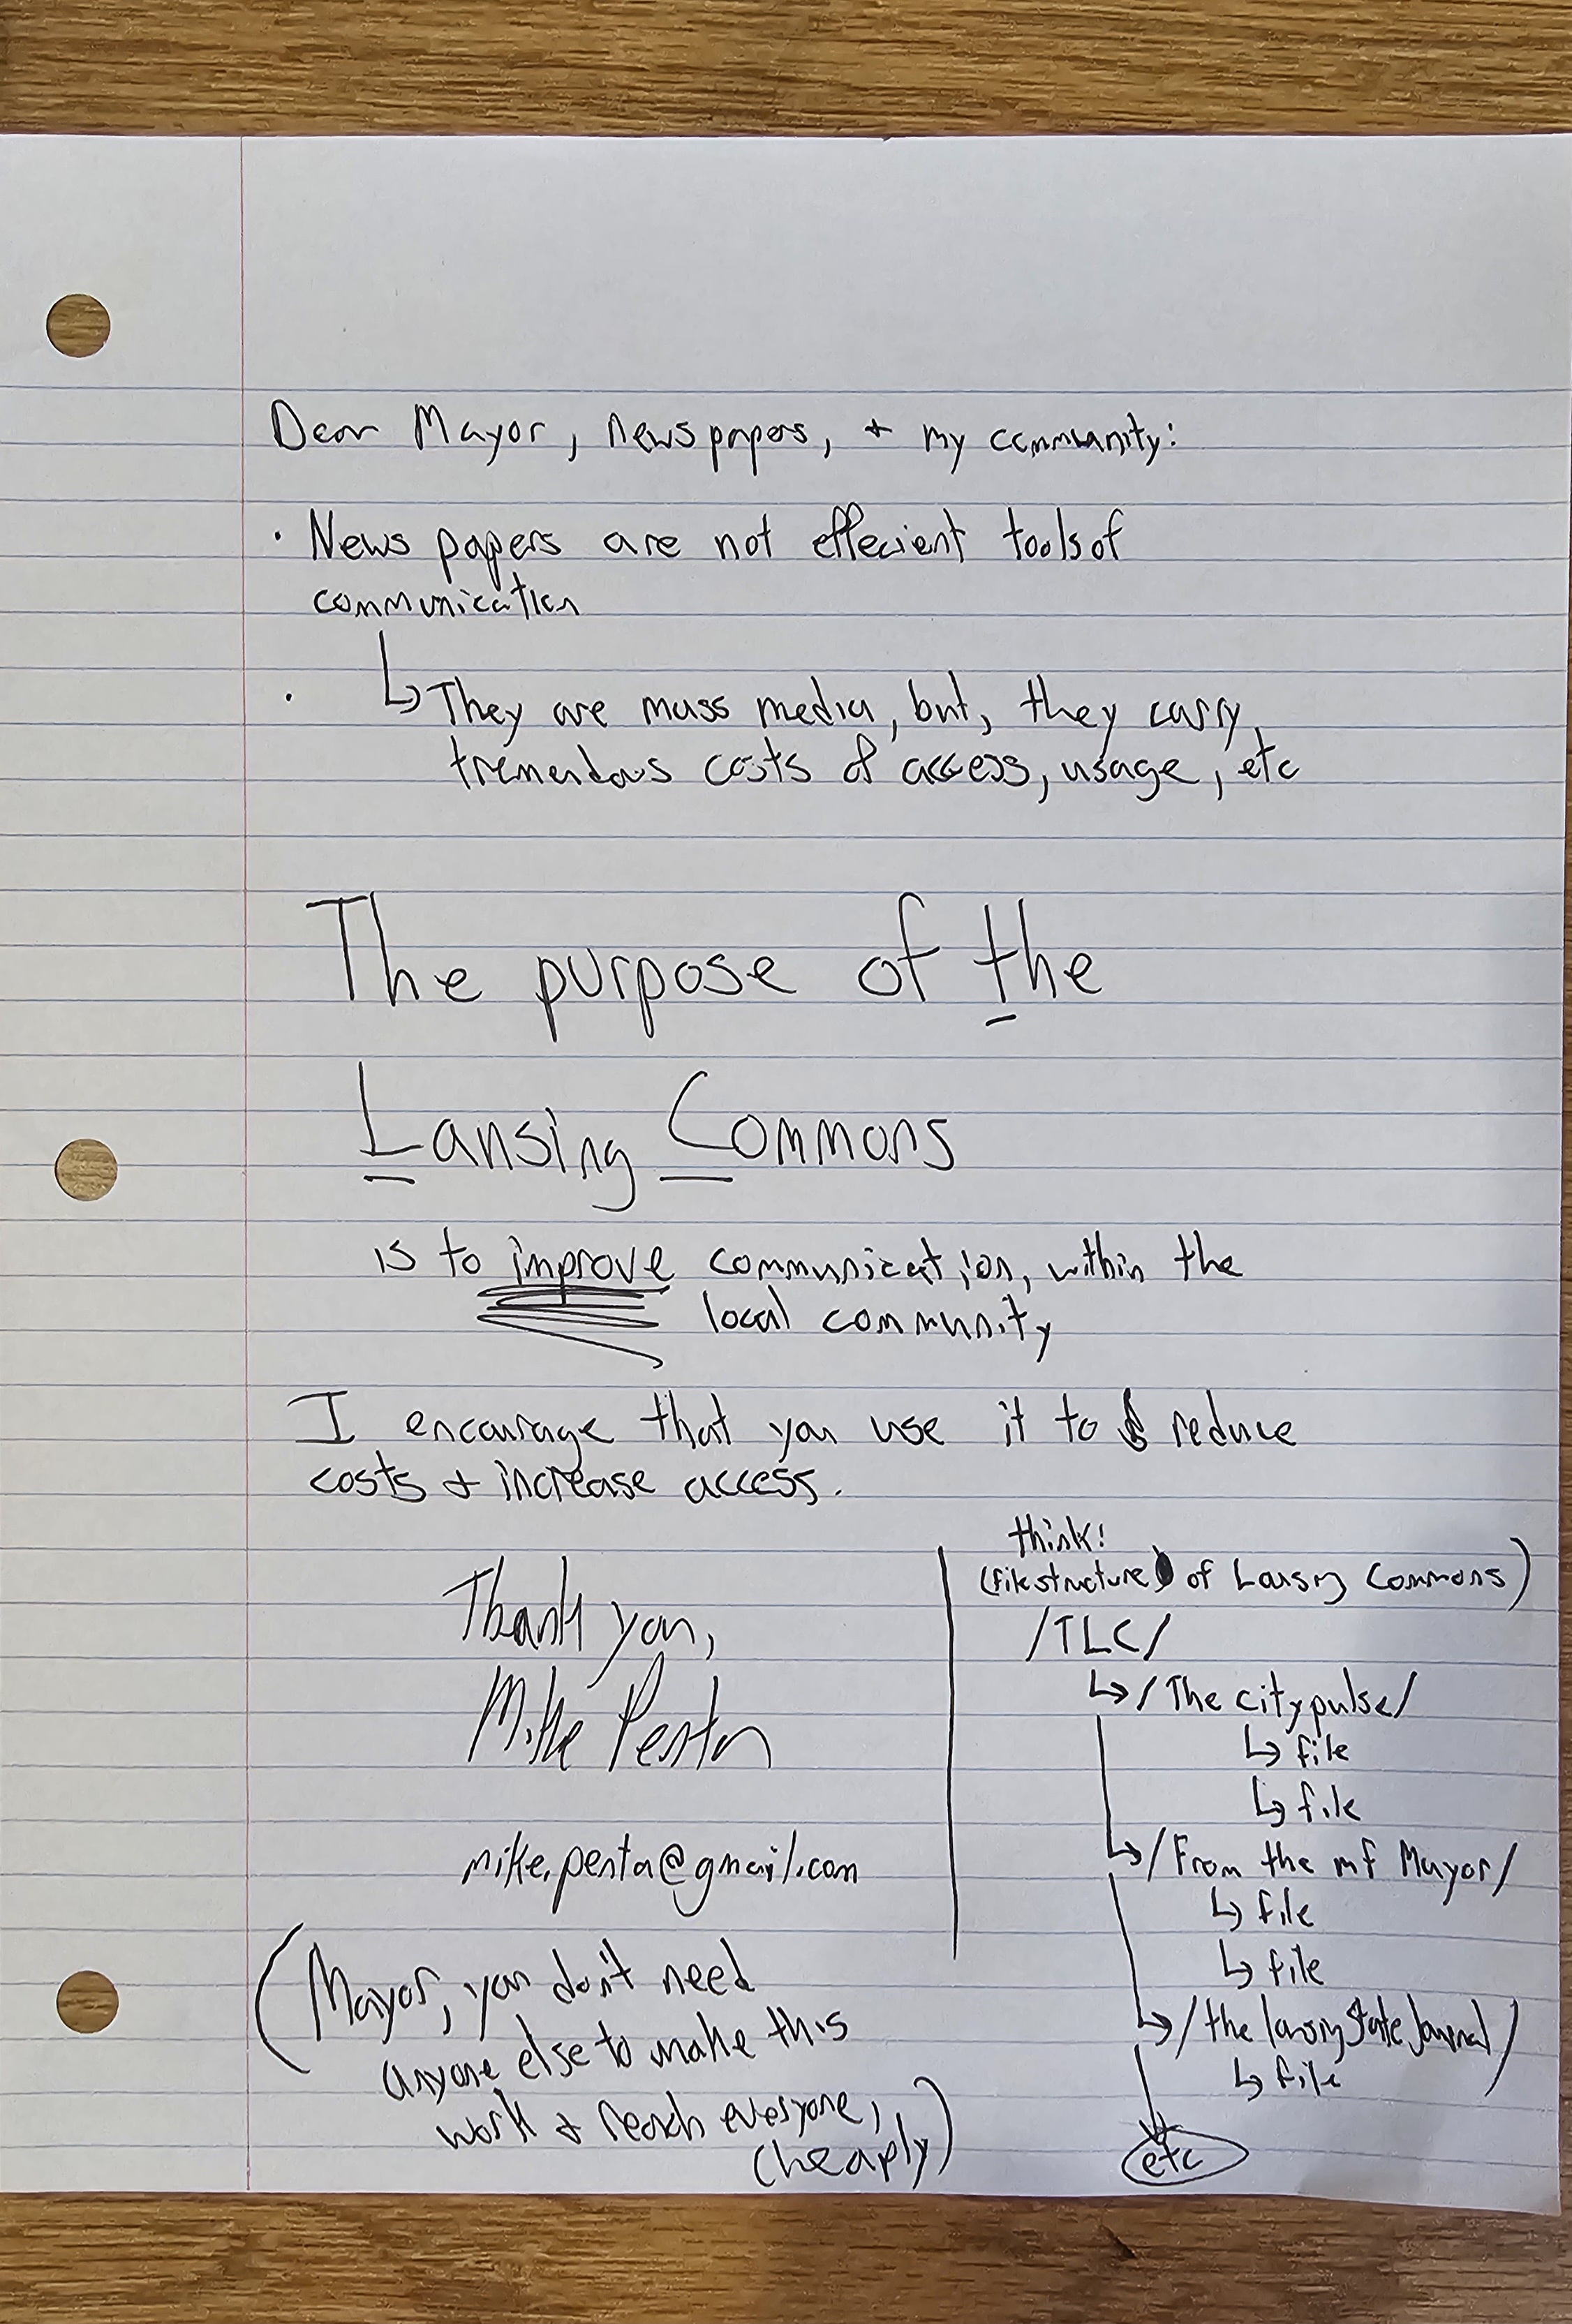 Dear Mayor, Newspapers, + my community:
· News papers are not effecient tools of
communication
· ↳ They are mass media, but, they carry
tremendous costs of access, usage, etc
The purpose of the
Lansing Commons
is to improve communication, within the
local community
I encourage that you use it to reduce
costs + increase access.
Thank you,
Mike Penta
mike.penta@gmail.com
(Mayor, you don't need
anyone else to make this
work + reach everyone,
cheaply)
think!
(file structure of Lansing Commons)
/TLC/
↳ /The city pulse/
↳ file
↳ file
↳ /From the mf Mayor/
↳ file
↳ file
↳ /the lansing State Journal/
↳ file
etc